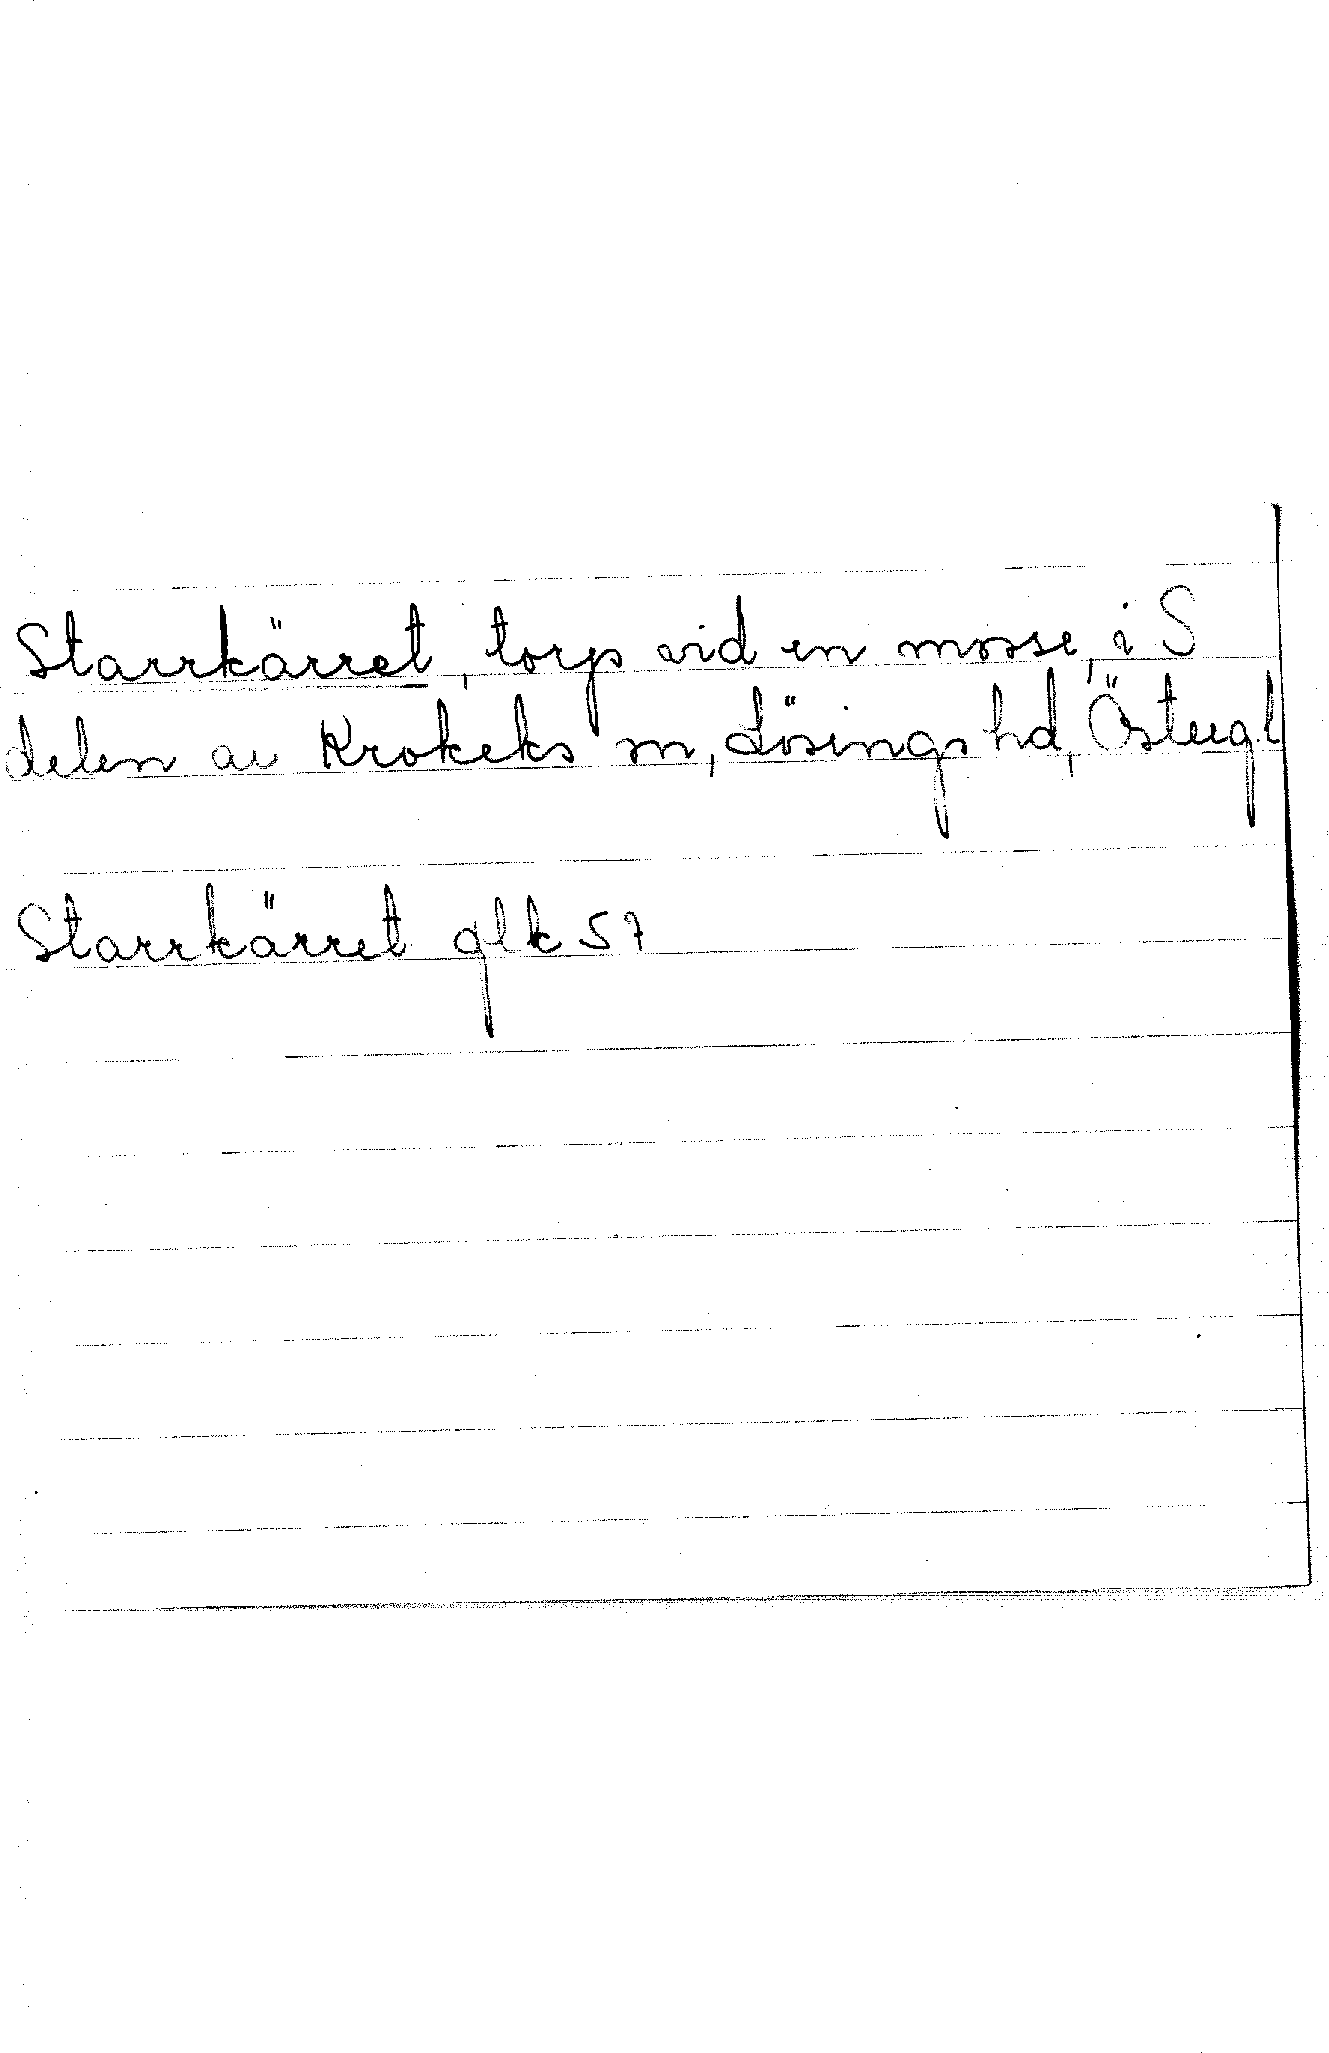 Starrkärret, torp vid en mosse, i S
delen av Krokeks sn, Lösings hd, Östergl
Starrkärret glk 57